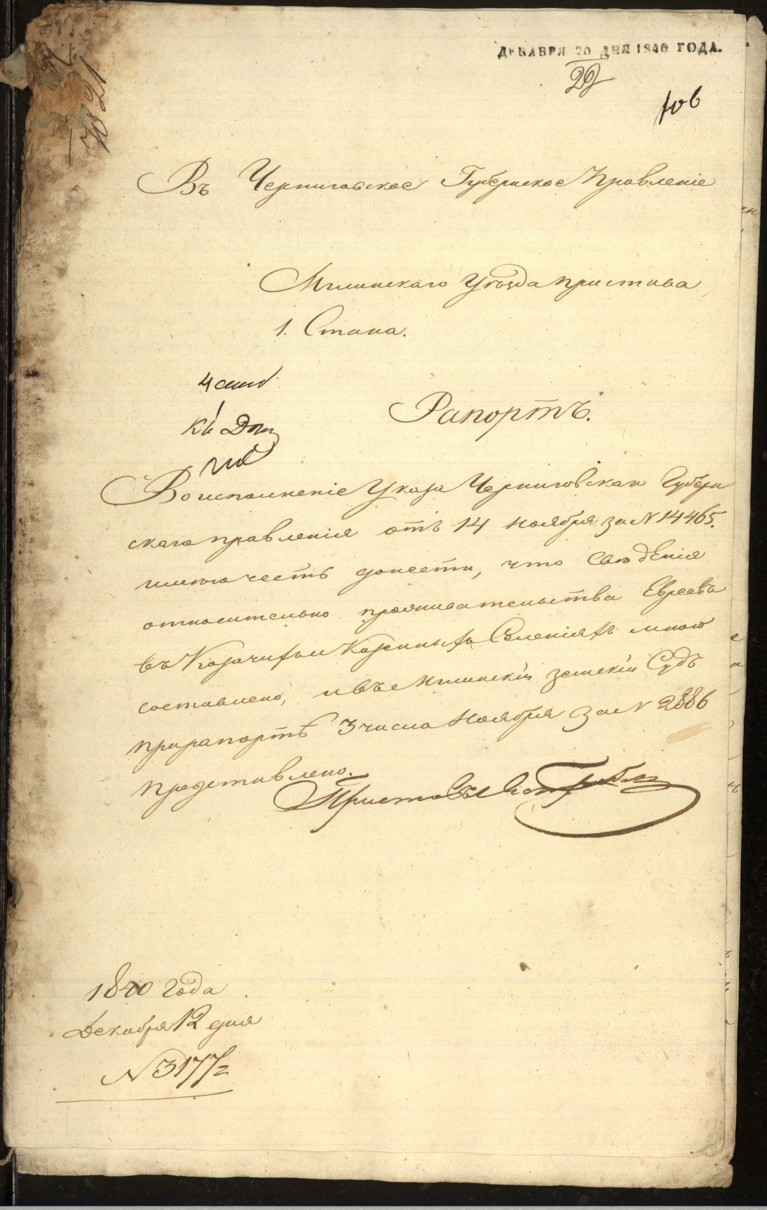 ДЕКАБРЯ 20 ДНЯ 1840 ГОДА.
106
7821
Въ Черниговское Губернское Правленіе
Мглинскаго Уѣзда пристава
1. Стана.
Рапортъ.
Во исполненіе Указа Черниговскаго Губерн
скаго правленія отъ 14 Ноября за № 14465.
имѣю честь донести, что Свѣдѣнія
относительно проживательства Евреевъ
въ Козачихъ и Казенныхъ Селеніяхъ мною
составлено, и въ Мглинскій земскій Судъ
при рапортѣ 3 числа Ноября за № 2886
представлено.
Приставъ
1840 года
Декабря 12 дня
№ 3177